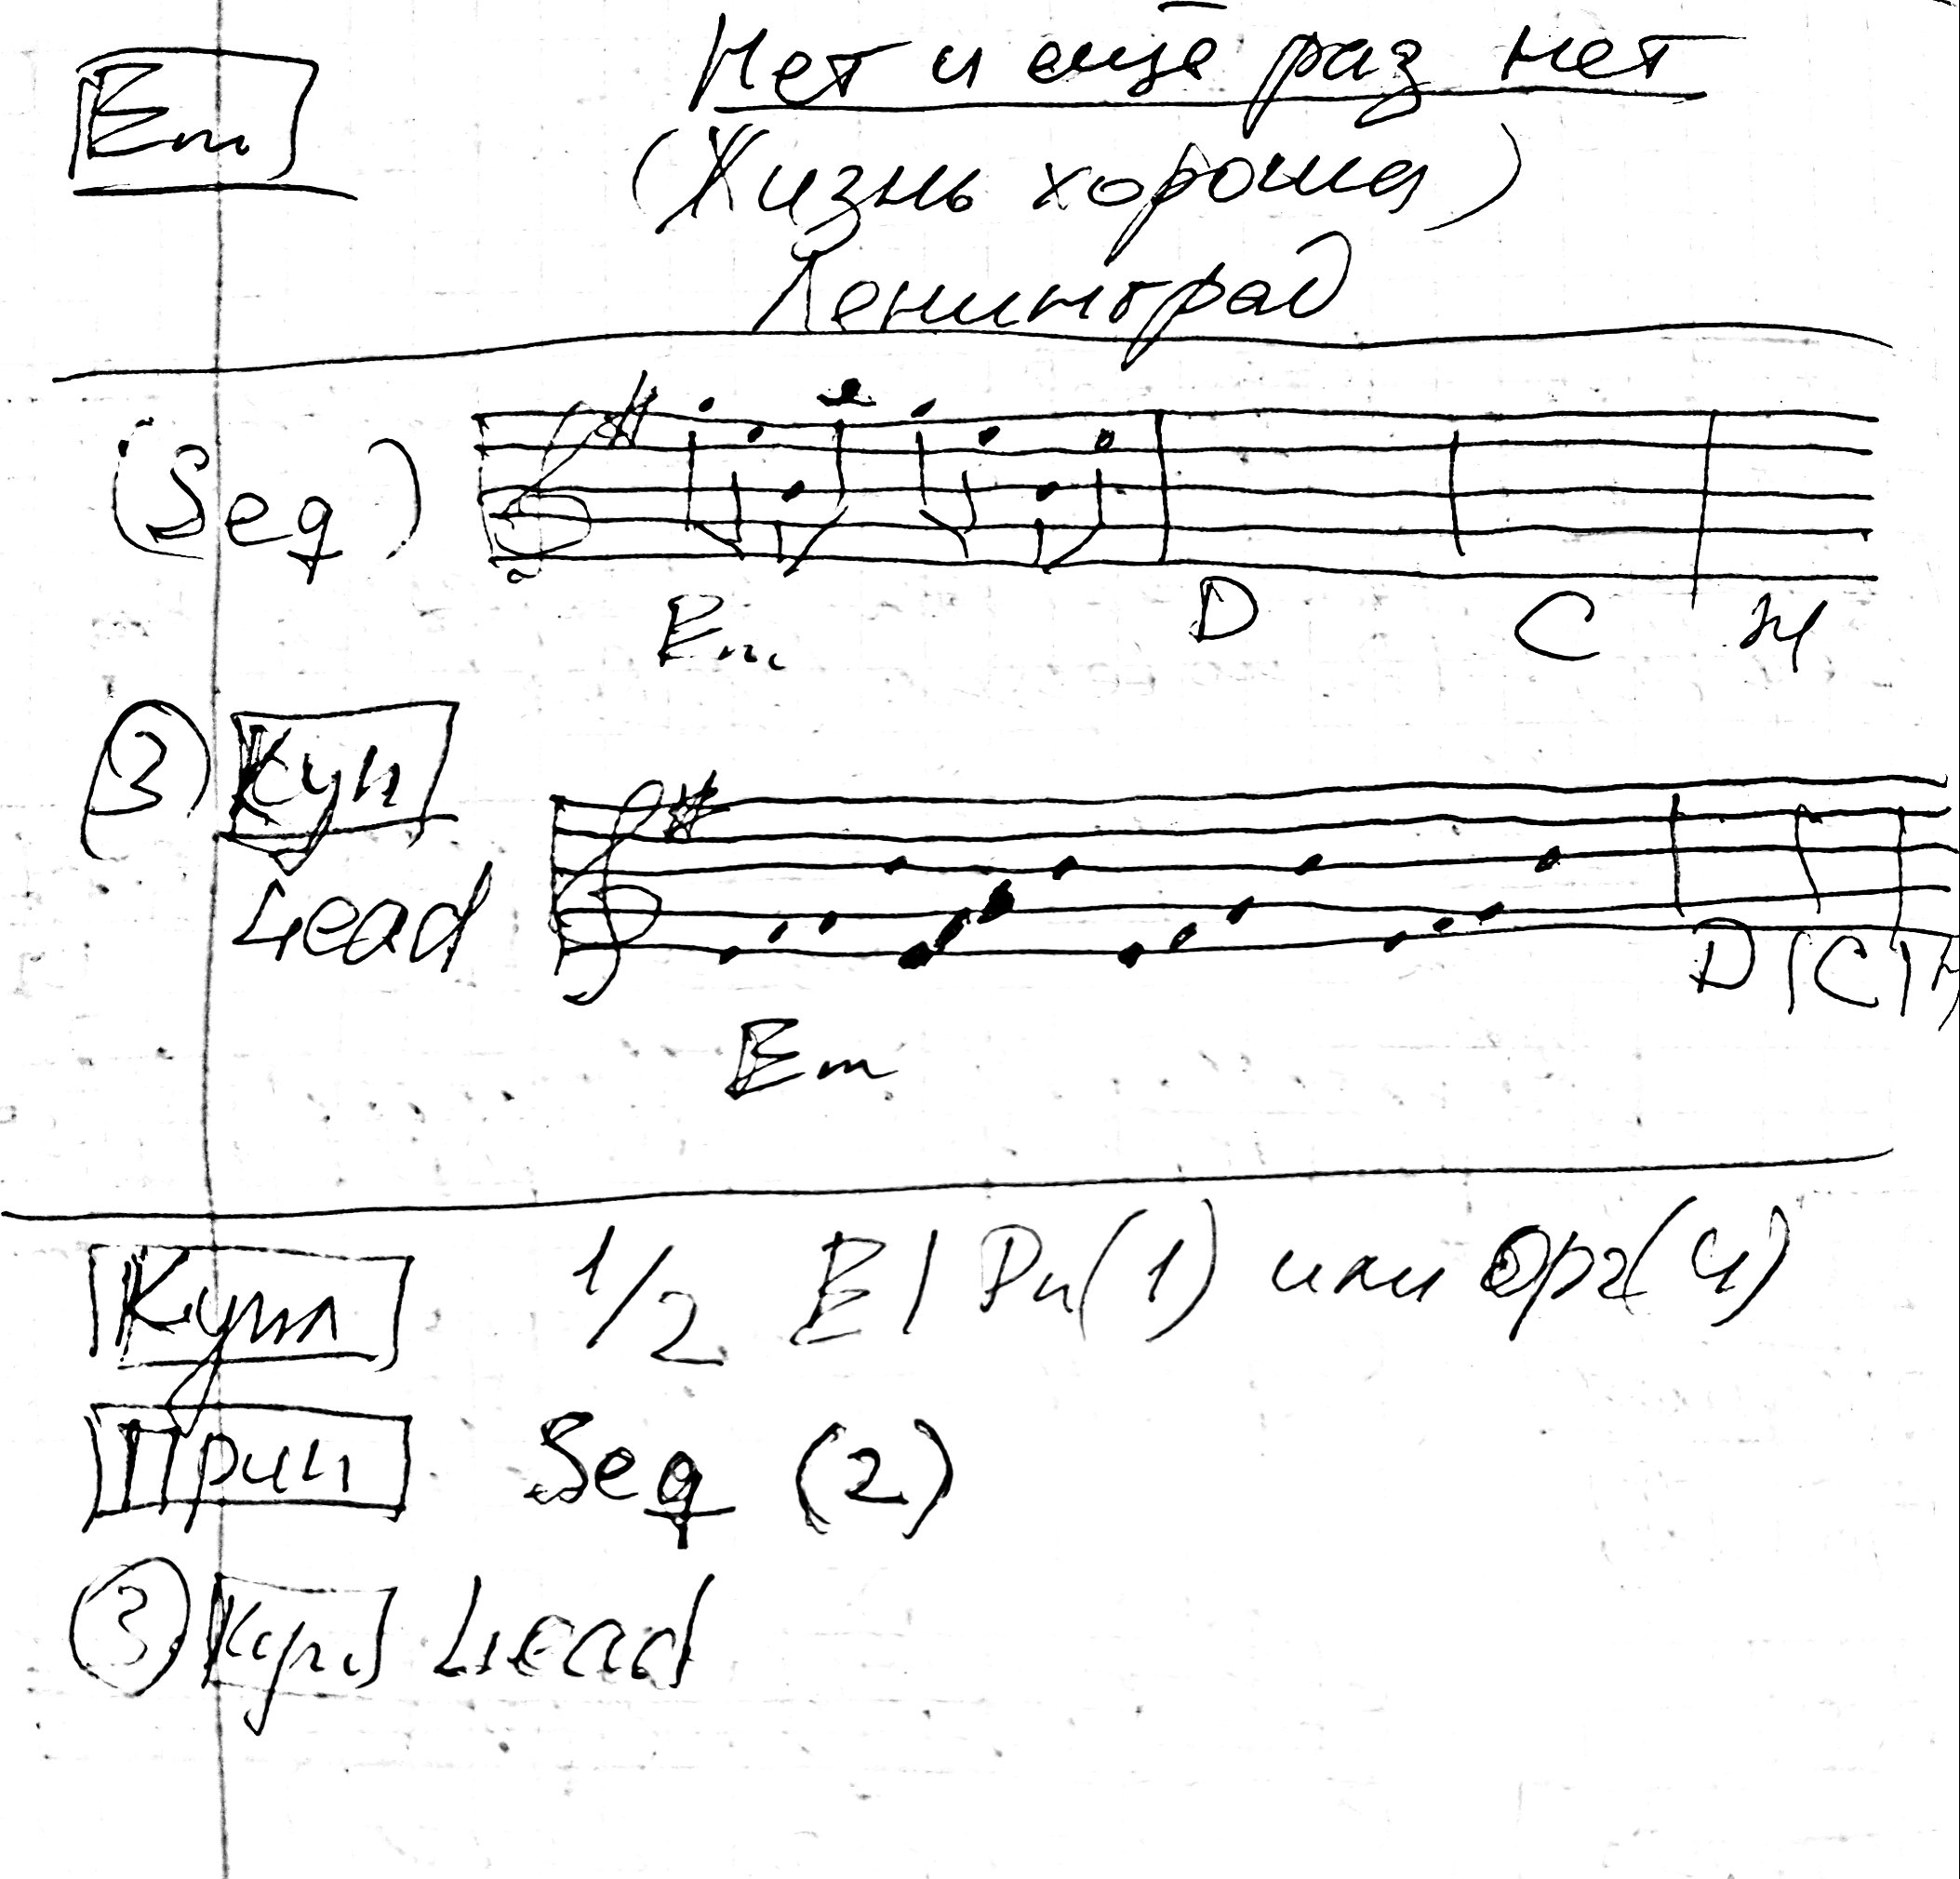 Em
Нет и ещё раз нет
(Жизнь хороша)
Ленинград
(Seq)
Em D C H
③ Куп
Lead
D | C | H
Em
Купл 1/2 E | Pn(1) или Орг(4)
Прип Seq (2)
③ Купл Lead